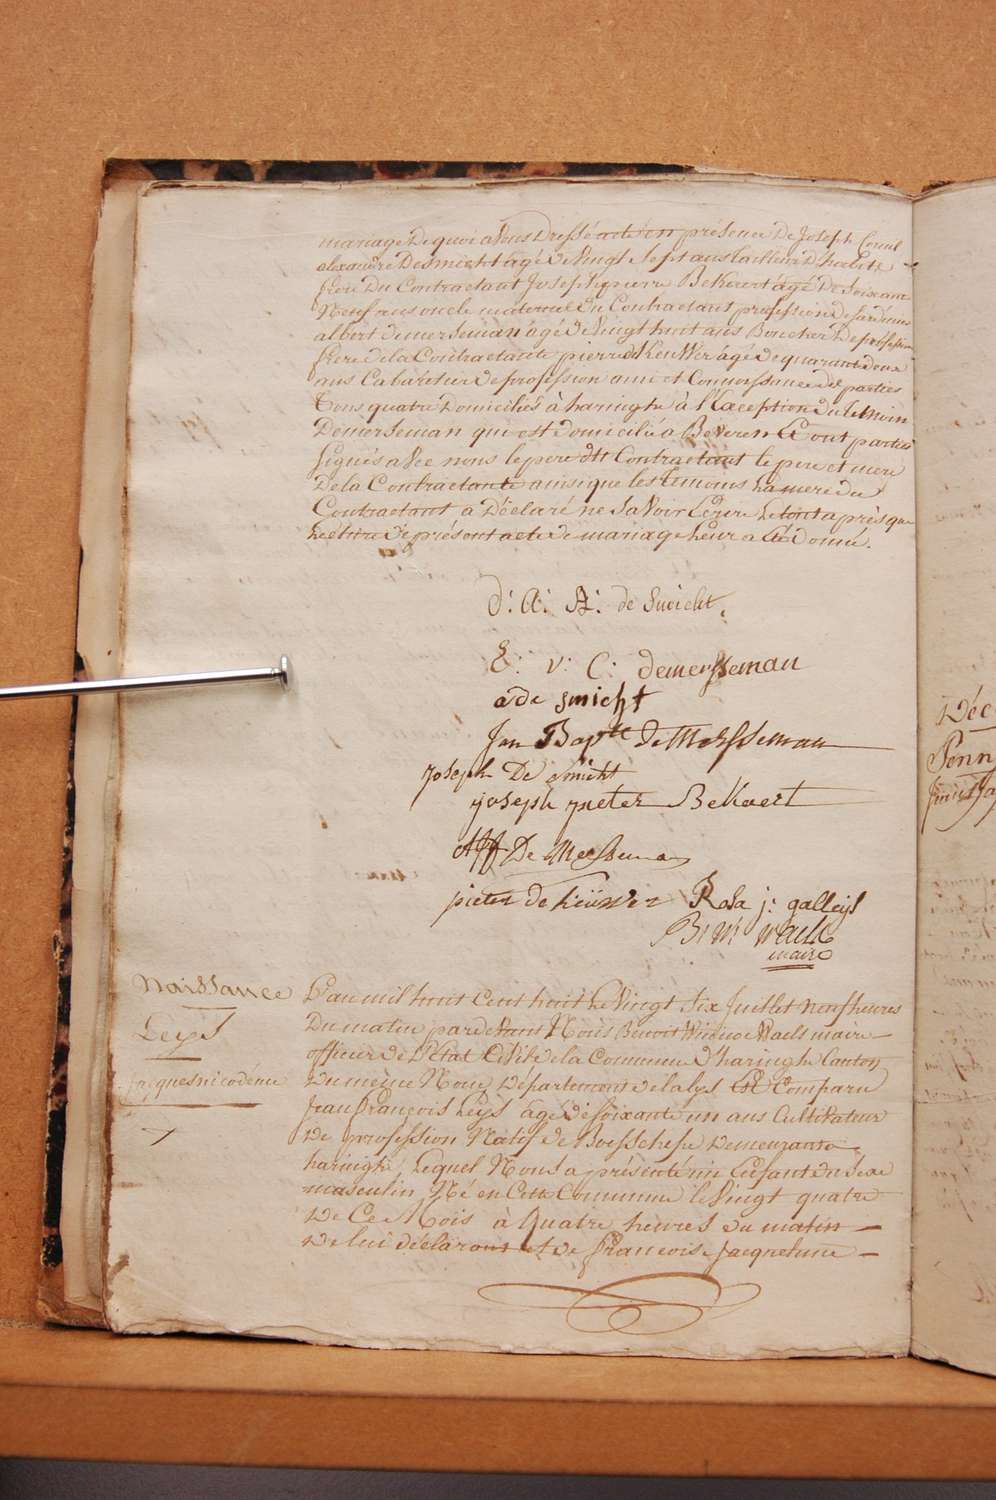 mariage De quoi avons Dressé acte en présence De Joseph Cornil
alexandre Desmicht agé de vingt sept ans tailleur D'habits
frère Du Contractant Joseph pierre Bekaert agé De Soixante
Neuf ans oncle maternel du Contractant profession de
albert demerseman agé de vingt huit ans Boucher De profession
frère de la Contractante pierre de Keuwer agé de quarante deux
ans Cabaretier de profession ami et Connoissance des parties
Tous quatre Domiciliés à haringhe à l'Exception du
Demerseman qui est domicilié a Beveren Et ont
signés avec nous le pere du Contractant le pere et mere
De la Contractante ainsi que les temoins la mere du
Contractant a Déclaré ne savoir Ecrire le tout après que
lecture de présent acte de mariage leur a été donné.
d: A: A: de Smicht.
E: v: C: demersseman
a de smicht
Jan Bapte de Mersseman
Joseph De Smicht
joseph pieter Bekaert
De Mersseman
pieter de keüwer Rosa j: galleys
Bt Wt Waels
maire
Naissance
Leys
jacques nicodéme
L'an mil huit Cent huit le vingt six Juillet neuf heures
Du matin pardevant Nous Benoit Winnoc Waels maire
officier de l'état Civil de la Commune d'haringhe Canton
Du même Nom, Département de la lys Est Comparu
Jean françois Leys agé de soixante un ans Cultivateur
De profession Natif de Boesschepe Demeurant a
haringhe, lequel Nous a présenté un Enfant du sexe
masculin, Né en Cette Commune le vingt quatre
De Ce Mois à Quatre heures du matin
De lui déclarant et de françoise Jacqueline
Déc